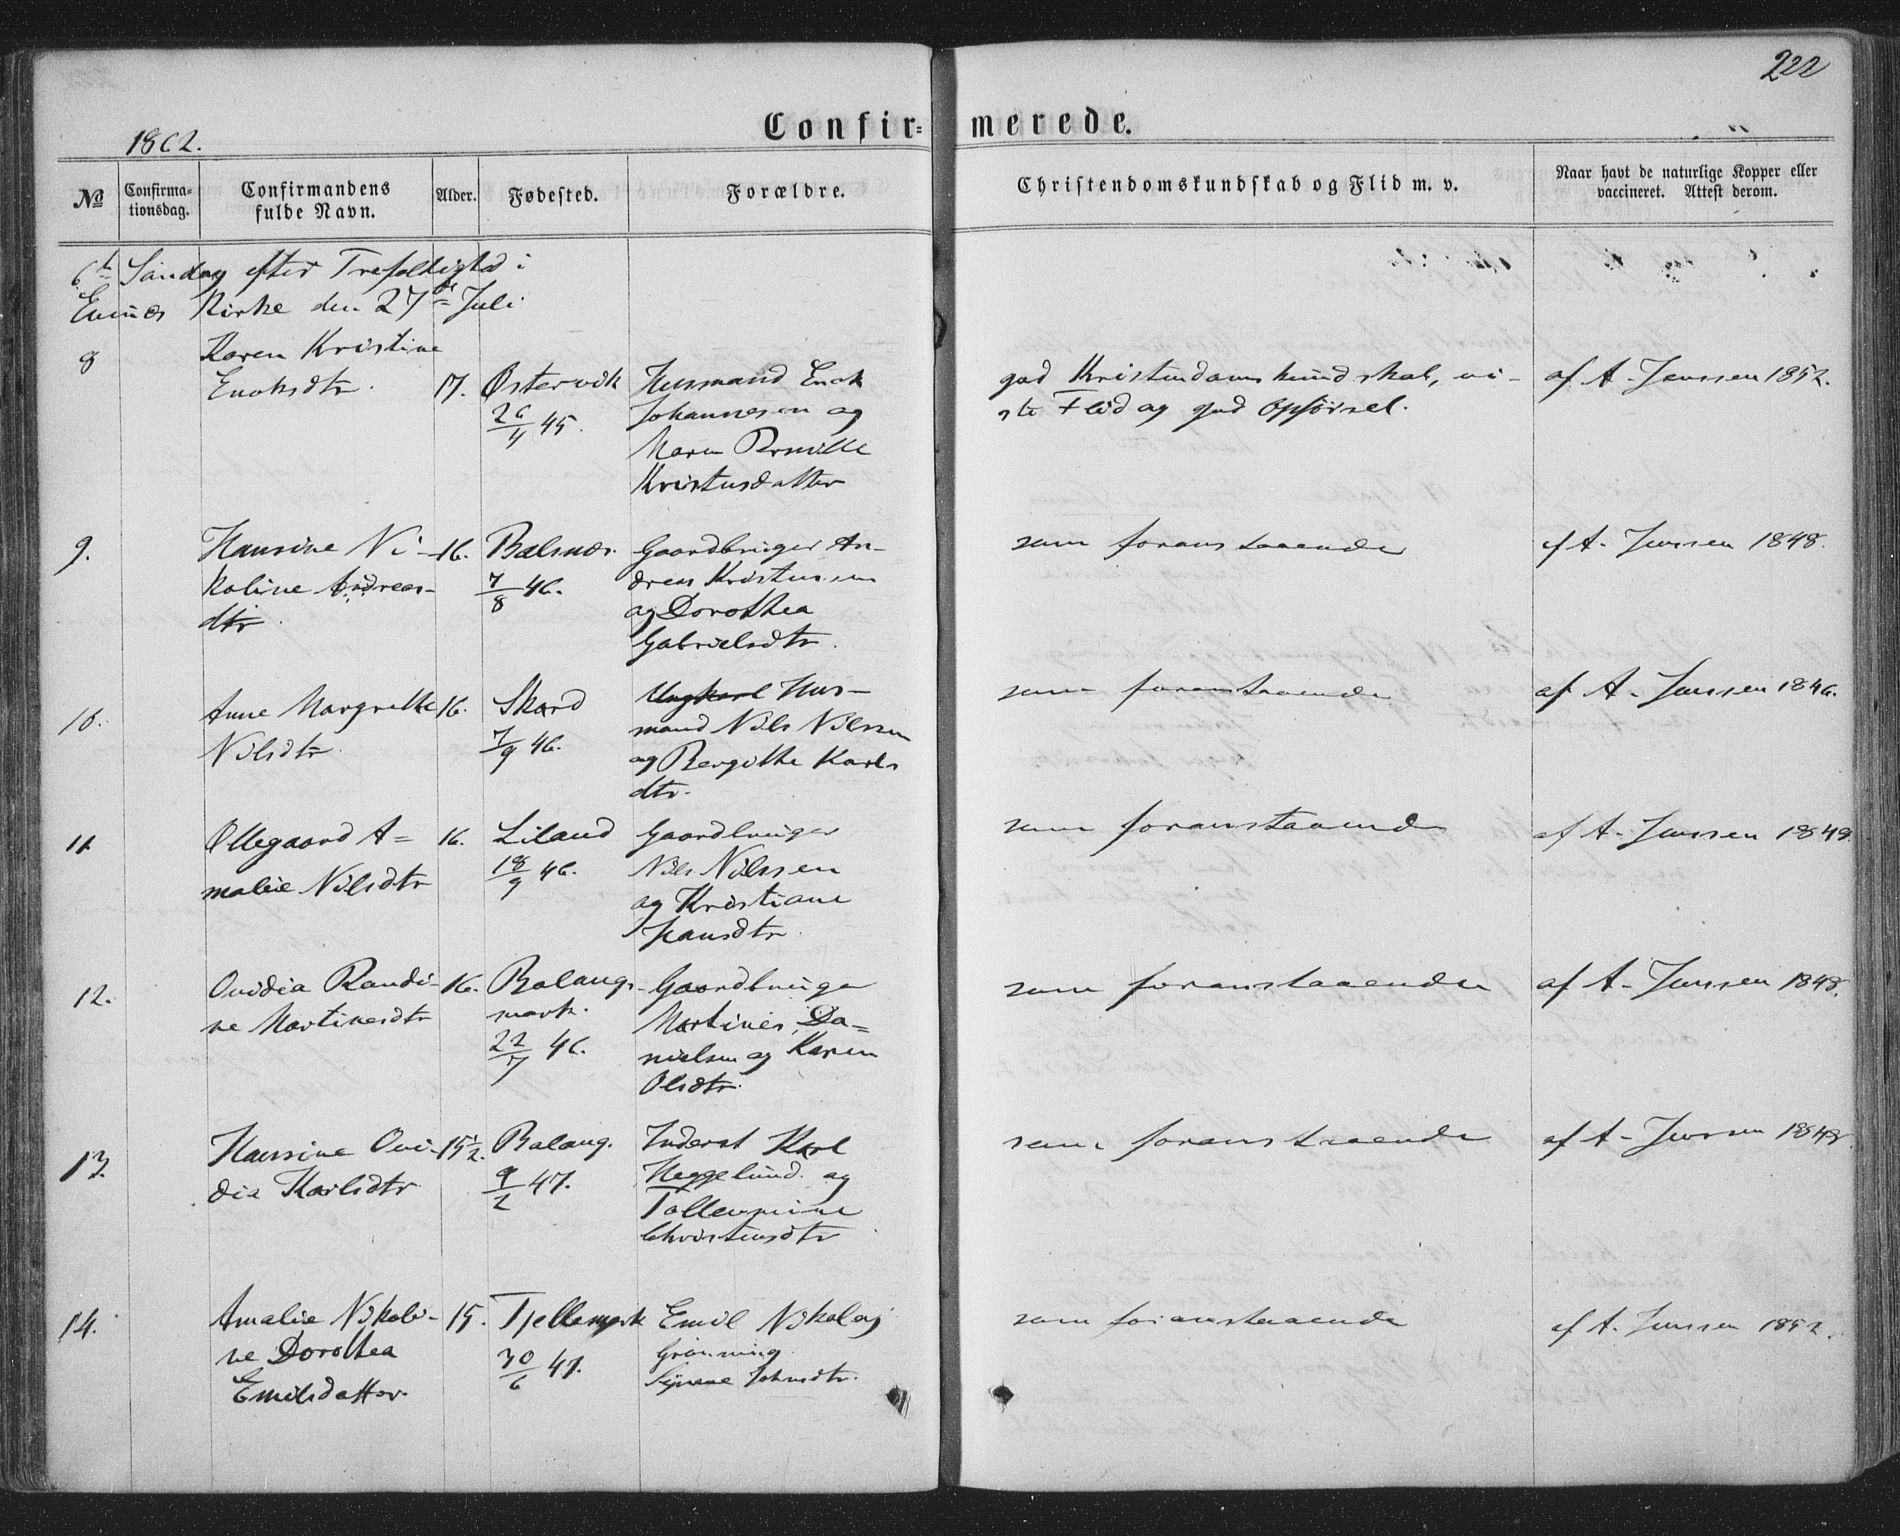 222
Confir= merede.
1862.
No
Confirma-
tionsdag.
Confirmandens
fulde Navn.
Alder.
Fødested.
Forældre.
Christendomskundskab og Flid m. v.
Naar havt de naturlige Kopper eller
vaccineret. Attest derom.
6te Søndag efter Trefoldighed i
Evenæs Kirke den 27de Juli
8
Karen Kristine
Enoksdtr.
17.
Østervik
26/4 45.
Husmand Enok
Johannesen og
Maren Pernille
Kristensdatter
god Kristendomskundskab, vi-
ste Flid og god Opførsel.
af A. Jenssen 1852.
9.
Hansine Ni-
koline Andreas-
dtr.
16.
Balsnes.
7/8 46.
Gaardbruger An-
dreas Kristensen
og Dorothea
Gabrielsdtr.
som foranstaaende
af A. Jenssen 1848.
10.
Anne Margrethe
Nilsdtr.
16.
Skard
7/9 46.
Ungkarl Hus-
mand Nils Nilssen
og Bergitte Karls
dtr.
som foranstaaende
af A. Jenssen 1846.
11.
Ollegaard A=
malie Nilsdtr
16.
Liland
18/9 46.
Gaardbruger
Nils Nilssen
og Kristiane
Hansdtr.
som foranstaaende
af A. Jenssen 1849.
12.
Ovidia Randi-
ne Martinesdtr
16.
Balangs-
mark.
22/7 46.
Gaardbruger
Martines Da=
nielsen og Karen
Olsdtr.
som foranstaaende
af A. Jenssen 1848.
13.
Hansine Ovi-
dia Karlsdtr
15½.
Balang.
9/2 47.
Inderst Karl
Heggelund og
Christensdtr
som foranstaaende
af A. Jenssen 1848.
14.
Amalie Nikoli-
ne Dorothea
Emilsdatter.
15.
Tjellemark
30/6 47.
Emil Nikolaj
Grønning
Johnsdtr.
som foranstaaende
af A. Jenssen 1852.